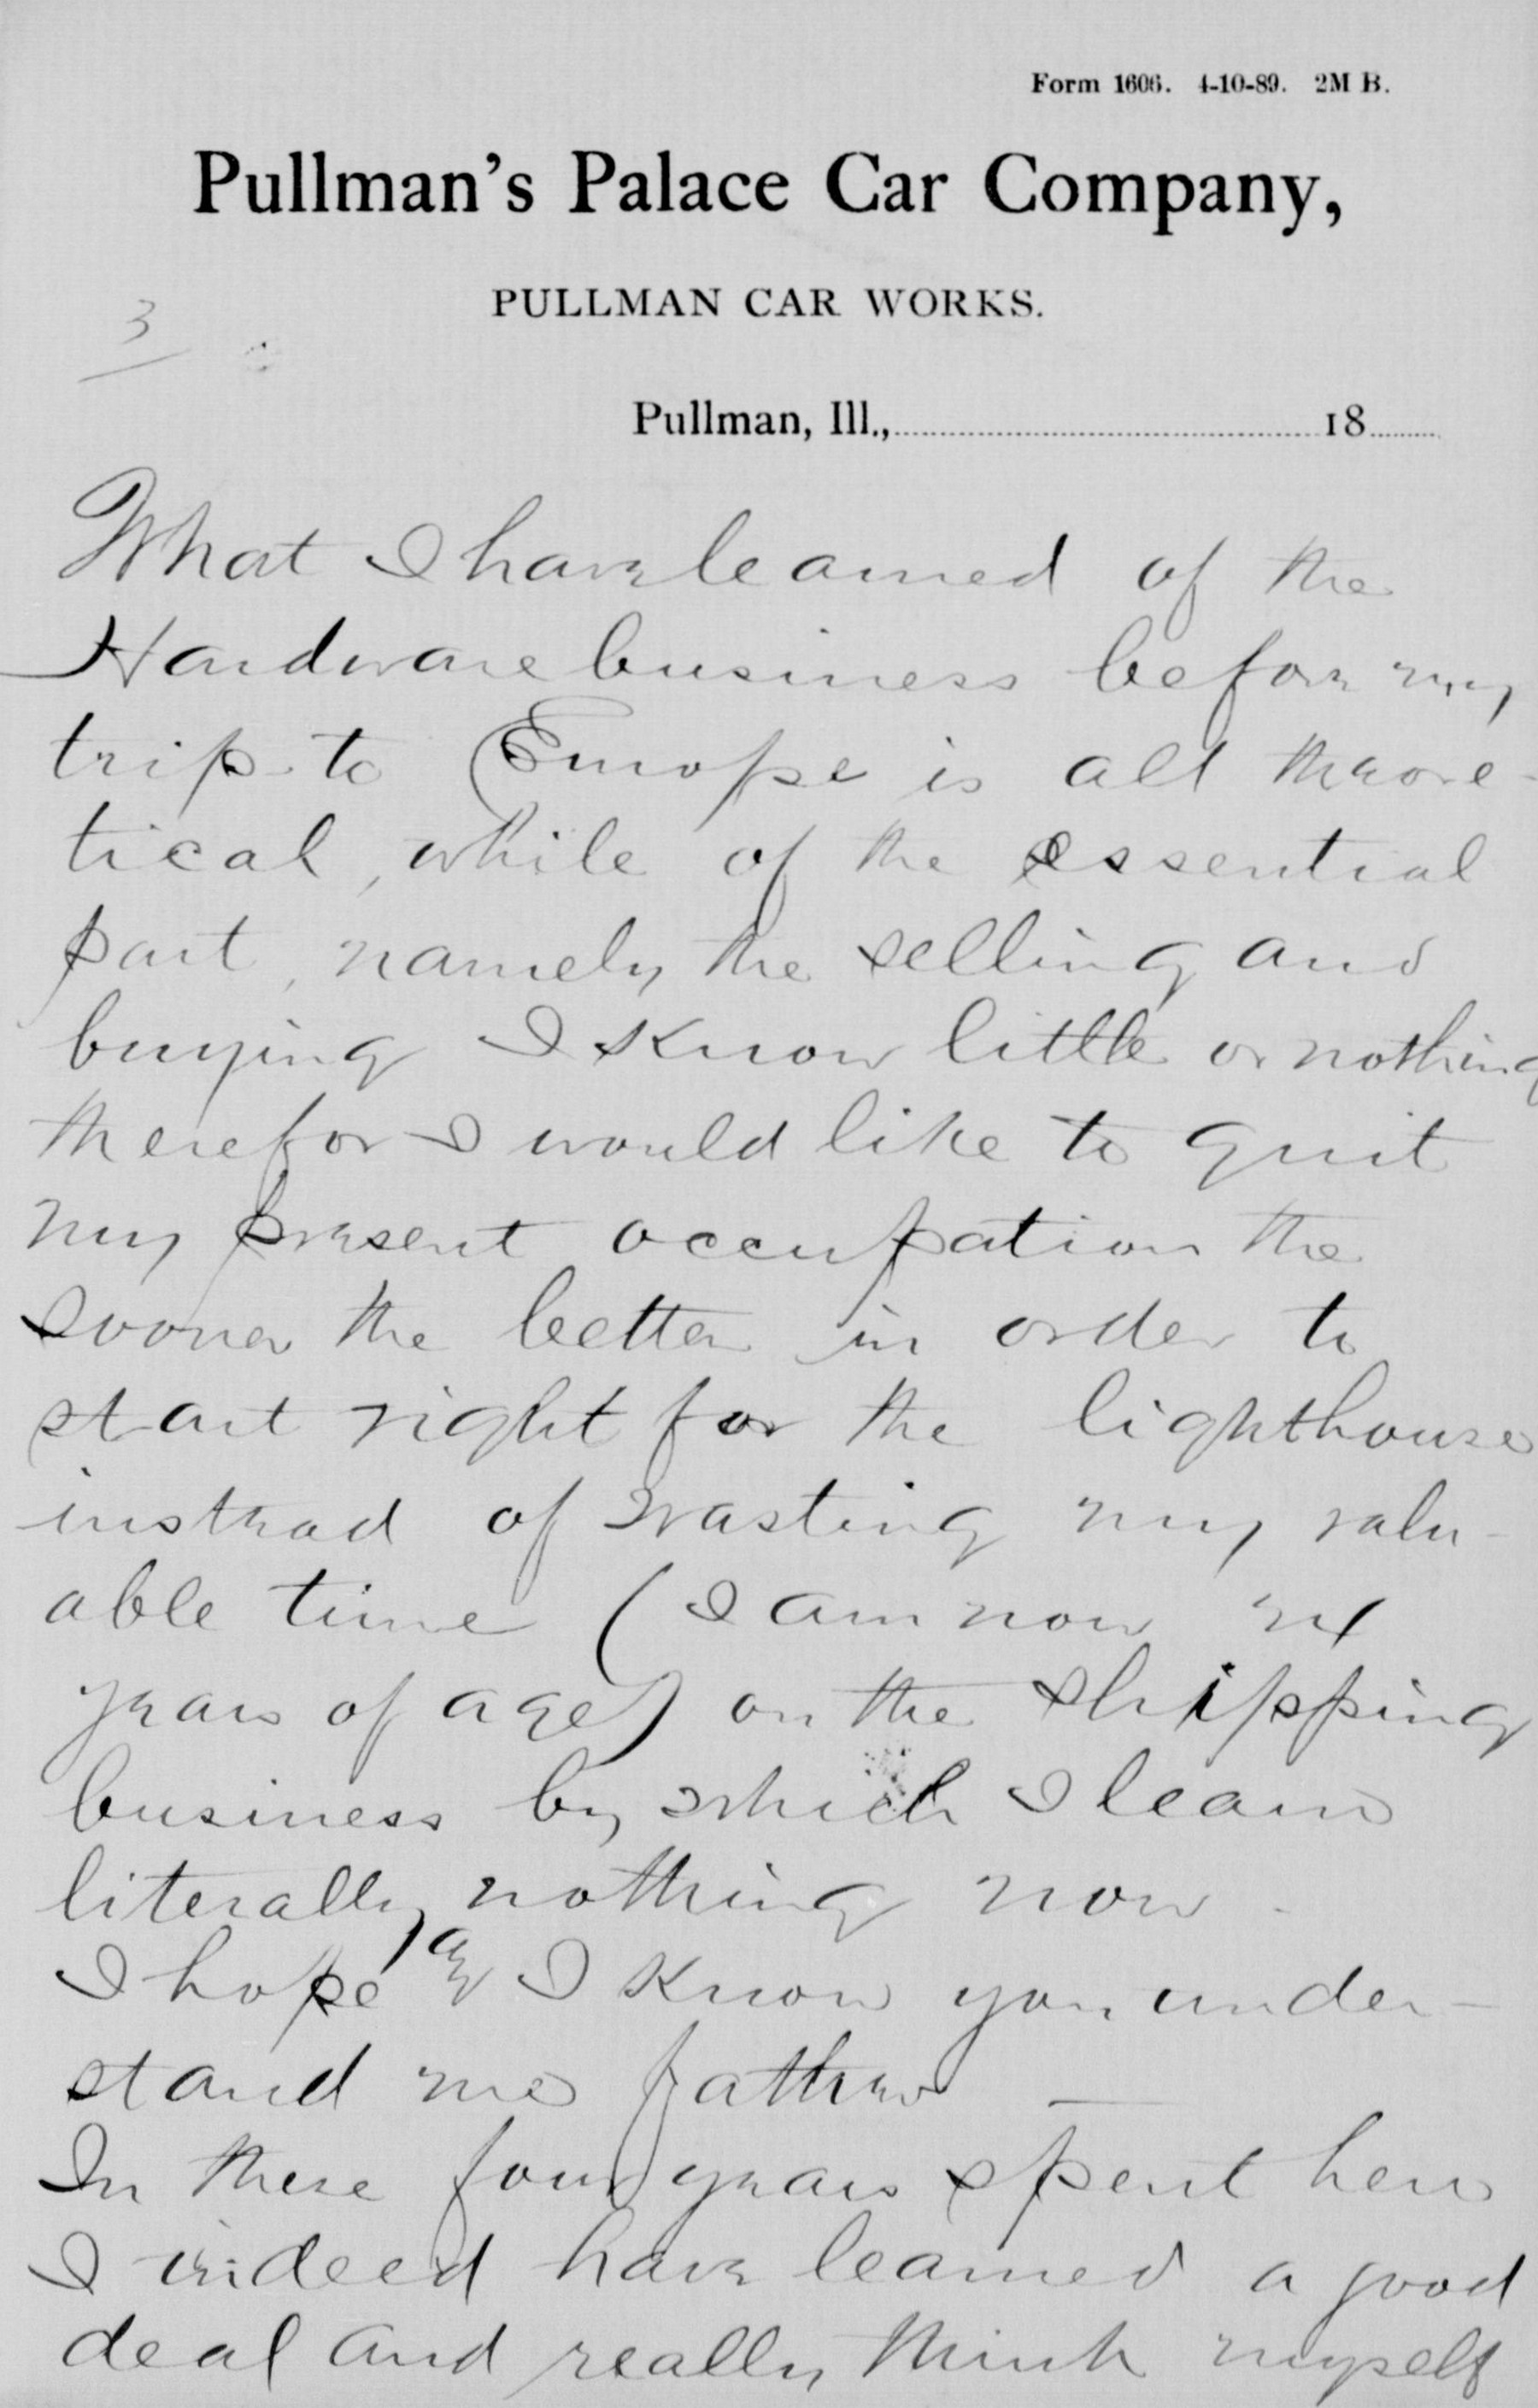 Form 1606. 4-10-89. 2M B.
Pullman's Palace Car Company,
PULLMAN CAR WORKS.
3
Pullman, Ill., 18
What I have learned of the
Hardware business before my
trip to Europe is all theore-
tical, while of the essential
part, namely the selling and
buying I know little or nothing
therefor I would like to quit
my present occupation the
sooner the better in order to
start right for the lighthouse
instead of wasting my valu-
able time (I am now
years of age) on the shipping
business by which I learn
literally nothing now.
I hope, as I know you under-
stand me father —
In these four years spent here
I indeed have learned a good
deal and really think myself